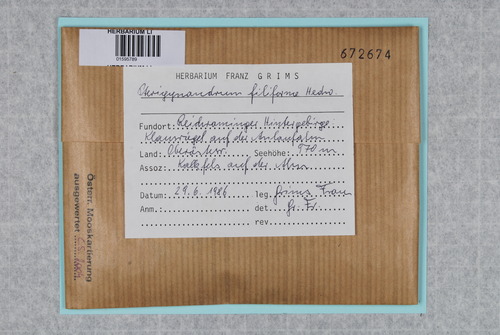 HERBARIUM LI
01595789
672674
HERBARIUM FRANZ GRIMS
Pterigynandrum filiforme Hedw.
Fundort: Reichraminger Hintergebirge
auf der
Land: Oberösterr. Seehöhe: 970 m
Assoz: Kalkfels auf der Alm
Datum: 29.6.1986 leg. Grims Franz
Anm.: det. Gr. Fr.
rev.
Österr. Mooskartierung
ausgewertet